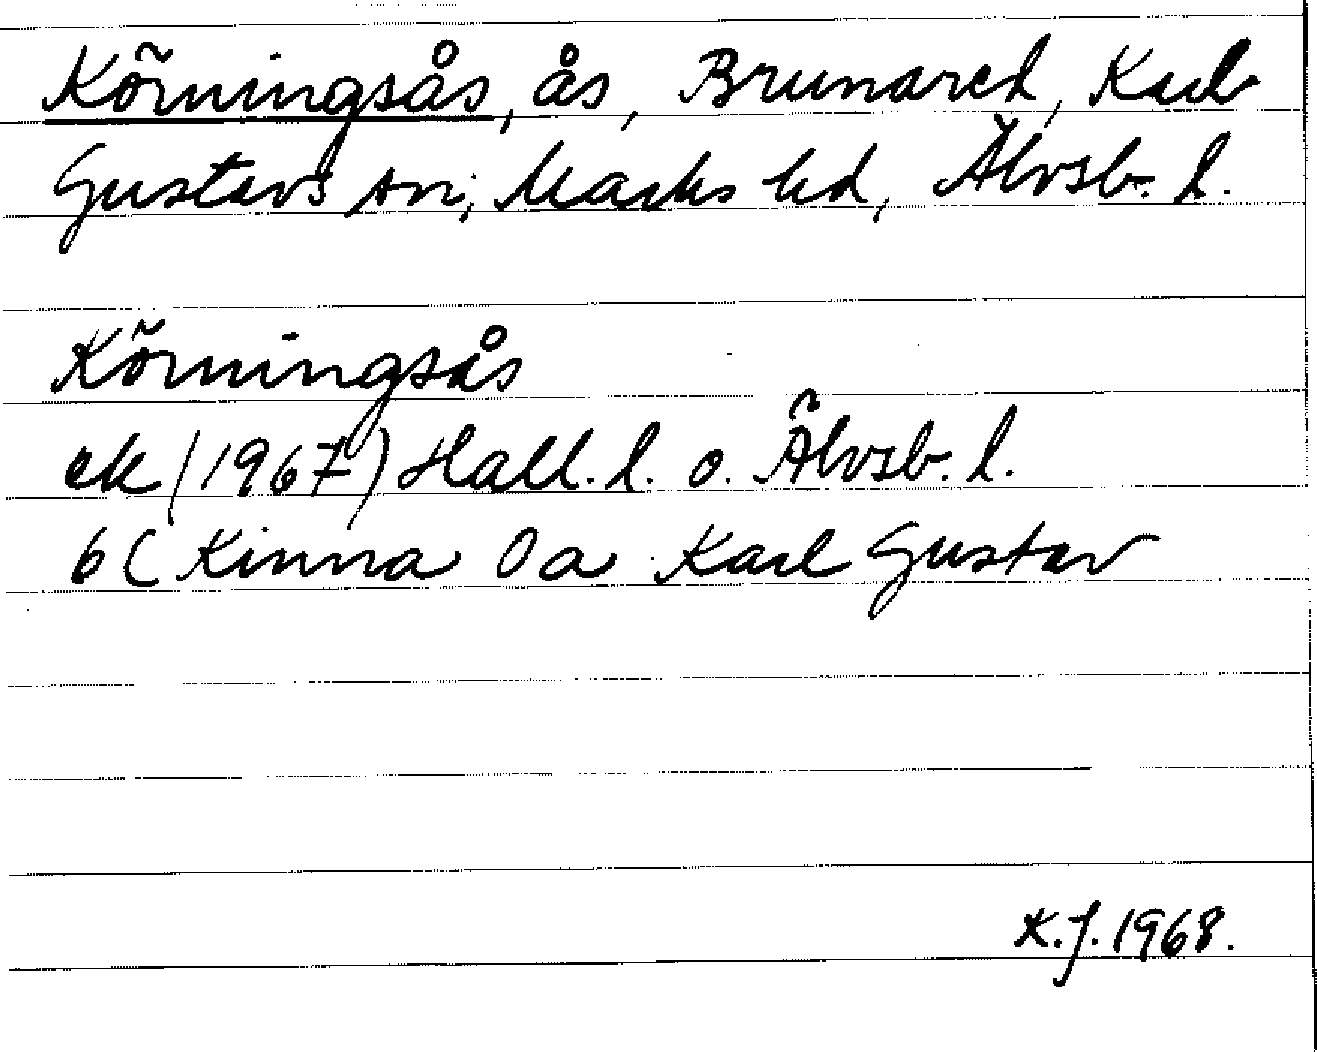 Körningsås, ås, Brunared, Karl
Gustavs sn, Marks hd, Älvsb. l.
Körningsås
ek (1967) Hall. l. o. Älvsb. l.
6C Kinna 0a Karl Gustav
K.J. 1968.